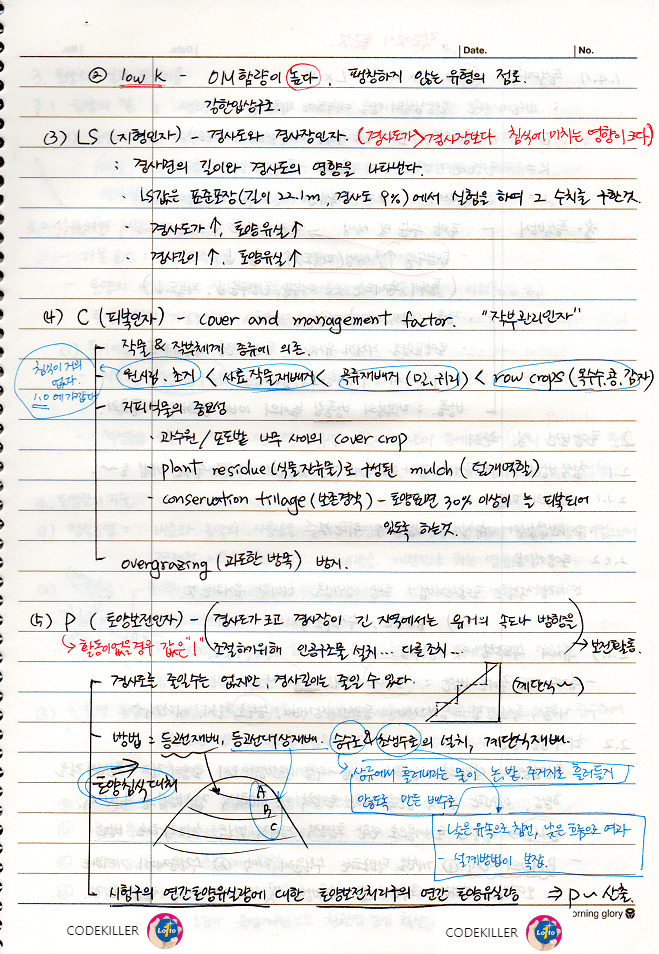 Date. No.
② low K - OM함량이 높다, 팽창하지 않는 유형의 점토.
강한입상구조.
(3) LS (지형인자) - 경사도와 경사장인자. (경사도가 > 경사장보다 침식에 미치는 영향이 크다)
; 경사면의 길이와 경사도의 영향을 나타낸다.
· LS값은 표준포장(길이 22.1m, 경사도 9%)에서 실험을 하여 그 수치를 구한것.
· 경사도가↑, 토양유실↑
· 경사길이↑, 토양유실↑
(4) C (피복인자) - cover and management factor. "작부관리인자"
작물 & 작부체계 종류에 의존.
침식이 거의 없다. 1.0에 가깝다
원시림, 초지 < 사료작물재배지 < 곡류재배지 (밀, 귀리) < row crops (옥수수, 콩, 감자)
지피식물의 중요성
· 과수원/포도밭 나무 사이의 cover crop
· plant residue (식물잔유물)로 구성된 mulch (덮개역할)
· conservation tillage (보존경작) - 토양표면 30% 이상이 늘 피복되어
있도록 하는것.
overgrazing (과도한 방목) 방지.
(5) P (토양보전인자) - (경사도가 크고 경사장이 긴 지역에서는 유거의 속도나 방향을
↳ 활동이없을경우 값은 "1" 조절하기위해 인공구조물 설치… 다른조치…) → 보전활동.
경사도를 줄일수는 없지만, 경사길이는 줄일 수 있다. (계단식~)
방법 = 등고선재배, 등고선대상재배. 승수로 & 초생수로의 설치, 계단식재배.
토양침식대책
A
B
C
상류에서 흘러내리는 물이 논, 밭, 주거지로 흘러들지
않도록 만든 배수로
- 낮은 유속으로 침전, 낮은 으로 여과
- 설계방법이 복잡.
시험구의 연간토양유실량에 대한 토양보전처리구의 연간 토양유실량 ⇒ P~산출.
orning glory
CODEKILLER Lotto
CODEKILLER Lotto